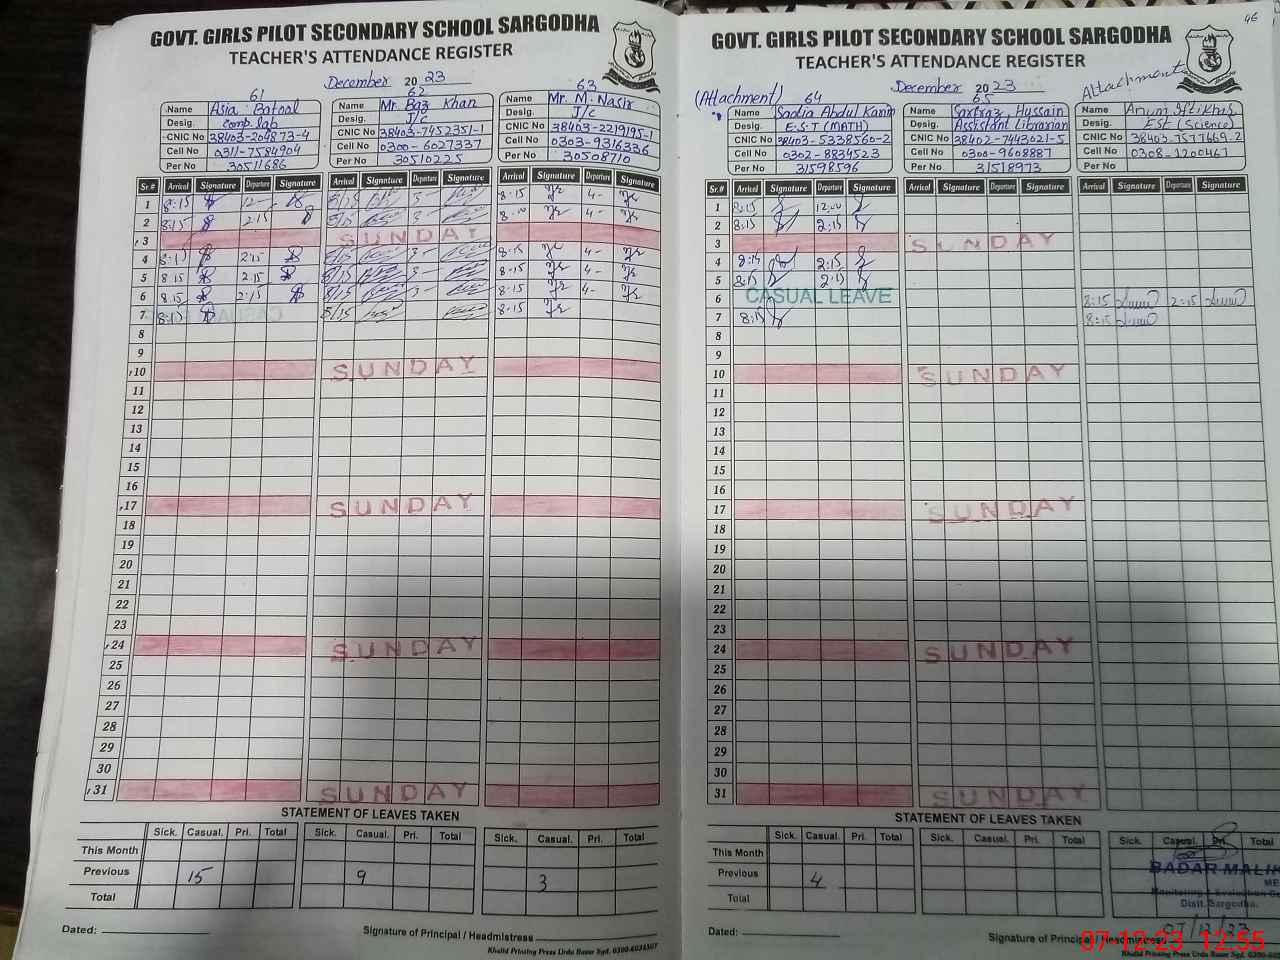 GOVT. GIRLS PILOT SECONDARY SCHOOL SARGODHA
TEACHER'S ATTENDANCE REGISTER
December 2023
61 62 63
Name Asia Batool Name Mr. Baz Khan Name Mr. M. Nasir
Desig. Comp. lab Desig. J/c Desig. J/c
CNIC No 38403-204873-4 CNIC No 38403-7452351-1 CNIC No 38403-2219195-1
Cell No 0311-7584904 Cell No 0300-6027337 Cell No 0303-9316336
Per No 30511686 Per No 30510225 Per No 30508710
Sr.# Arrival Signature Departure Signature Arrival Signature Departure Signature Arrival Signature Departure Signature
1 8:15 12- 8.15 4-
2 8:15 2:15 4-
3 SUNDAY
4 2:15 8.15 4-
5 8.15 2.15 8.15 4-
6 8.15 2:15 8.15 4-
7 8.15
8
9
10 SUNDAY
11
12
13
14
15
16
17 SUNDAY
18
19
20
21
22
23
24 SUNDAY
25
26
27
28
29
30
31 SUNDAY
STATEMENT OF LEAVES TAKEN
Sick. Casual. Pri. Total Sick. Casual. Pri. Total Sick. Casual. Pri. Total
This Month
Previous 15 9 3
Total
Dated: Signature of Principal / Headmistress
Khalid Printing Press Urdu Bazar Sgd. 0300-6034507
46
GOVT. GIRLS PILOT SECONDARY SCHOOL SARGODHA
TEACHER'S ATTENDANCE REGISTER
December 2023
(Attachment) 64 65 Attachment
Name Sadia Abdul Karim Name Sarfraz Hussain Name Anum Iftikhar
Desig. E.S.T (MATH) Desig. Assistant Librarian Desig. EST (Science)
CNIC No 38403-5338560-2 CNIC No 38402-7443021-5 CNIC No
Cell No 0302-8834523 Cell No 0300-9608887 Cell No 0308-1200461
Per No 31598596 Per No 31518973 Per No
Sr.# Arrival Signature Departure Signature Arrival Signature Departure Signature Arrival Signature Departure Signature
1 8:15 12:00
2 8:15 2:15
3 SUNDAY
4 8:15 2:15
5 8:15 2:15
6 CASUAL LEAVE 8:15 2:15
7 8:15 8:15
8
9
10 SUNDAY
11
12
13
14
15
16
17 SUNDAY
18
19
20
21
22
23
24 SUNDAY
25
26
27
28
29
30
31 SUNDAY
STATEMENT OF LEAVES TAKEN
Sick. Casual. Pri. Total Sick. Casual. Pri. Total Sick. Casual. Pri. Total
This Month
Previous 4
Total
BADAR MALIK
Distt. Sargodha.
07/12/23
Dated: Signature of Principal / Headmistress
Khalid Printing Press Urdu Bazar Sgd. 0300-60
07-12-23 12:55